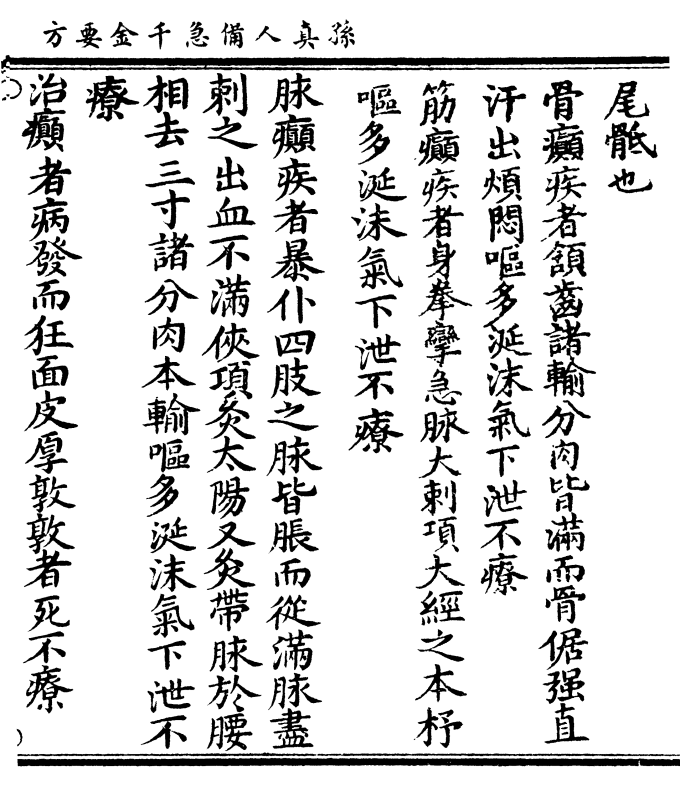 孫真人備急千金要方
尾骶也
骨癲疾者頷齒諸輸分肉皆滿而骨倨强直
汗出煩悶嘔多涎沫氣下泄不療
筋癲疾者身拳攣急脉大刺項大經之本杼
嘔多涎沫氣下泄不療
脉癲疾者暴仆四肢之脉皆脹而從滿脉盡
刺之出血不滿俠項灸太陽又灸帶脉於腰
相去三寸諸分肉本輸嘔多涎沫氣下泄不
療
治癲者病發而狂面皮厚敦敦者死不療